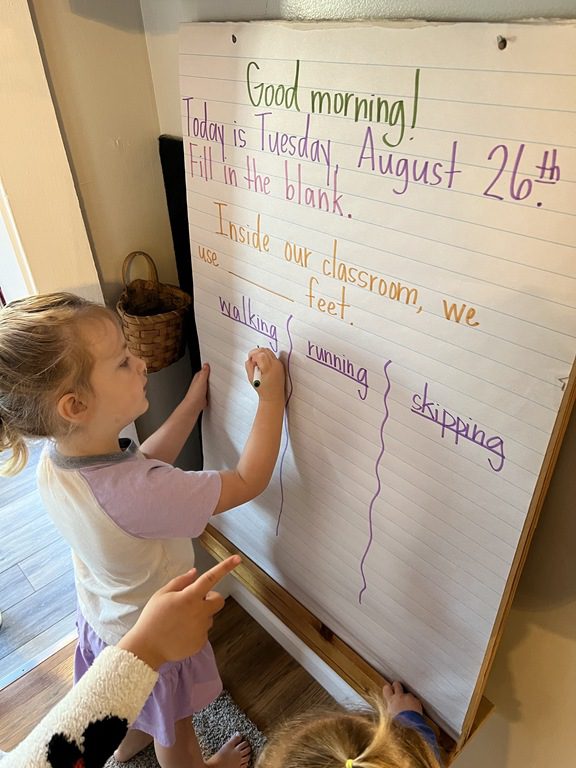 Good morning!
Today is Tuesday, August 26th.
Fill in the blank.
Inside our classroom, we
use ________ feet.
walking running skipping